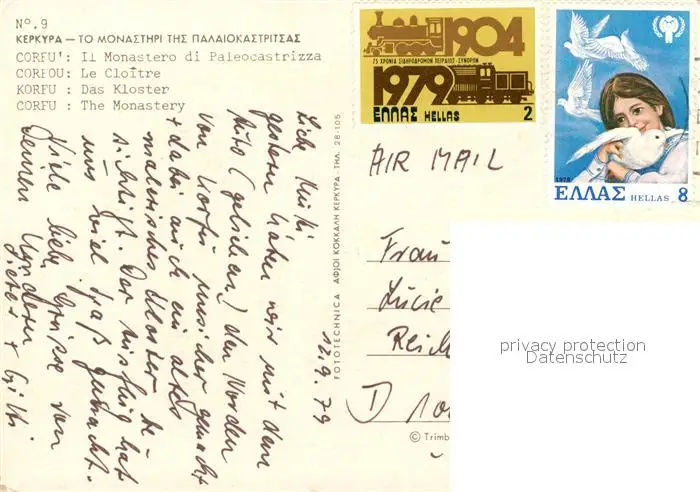 Nº. 9
ΚΕΡΚΥΡΑ — ΤΟ ΜΟΝΑΣΤΗΡΙ ΤΗΣ ΠΑΛΑΙΟΚΑΣΤΡΙΤΣΑΣ
CORFU': Il Monastero di Paleocastrizza
CORFOU: Le Cloître
KORFU : Das Kloster
CORFU : The Monastery
gestern haben wir mit dem
Auto (geliehen) den Norden
von Korfu unsicher gemacht
+ dabei auch ein altes
malerisches Kloster be-
sichtigt. Der Ausflug hat
uns viel Spaß gemacht.
Viele liebe Grüße von
Deinen Kindern
12.9.79
FOTOTECHNICA ΑΦΟΙ ΚΟΚΚΑΛΗ ΚΕΡΚΥΡΑ - ΤΗΛ. 28-105
1904
75 ΧΡΟΝΙΑ ΣΙΔΗΡΟΔΡΟΜΟΝ ΠΕΙΡΑΙΩΣ-ΣΥΝΟΡΩΝ
1979
ΕΛΛΑΣ HELLAS 2
1979
ΕΛΛΑΣ HELLAS 8
AIR MAIL
Frau
Lucie
Reich
D 10
© Trimb
privacy protection
Datenschutz